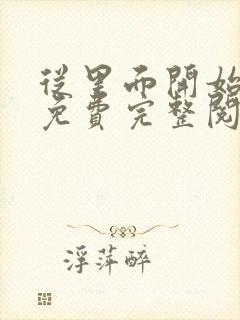 從里而開始
免費完整閱
浮萍醉